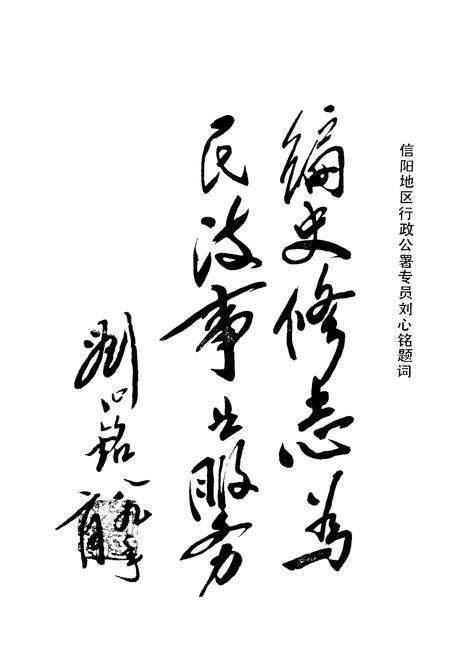 信阳地区行政公署专员刘心铭题词
编史修志为
民政事业服务
刘心铭